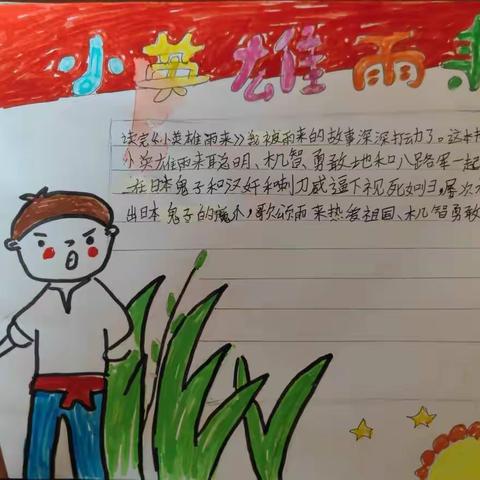 小英雄雨来
读完《小英雄雨来》我被雨来的故事深深打动了。这本书
小英雄雨来聪明、机智、勇敢地和八路军一起
在日本鬼子和汉奸和刺刀威逼下视死如归,屡次
出日本鬼子的魔爪,歌颂雨来热爱祖国、机智勇敢